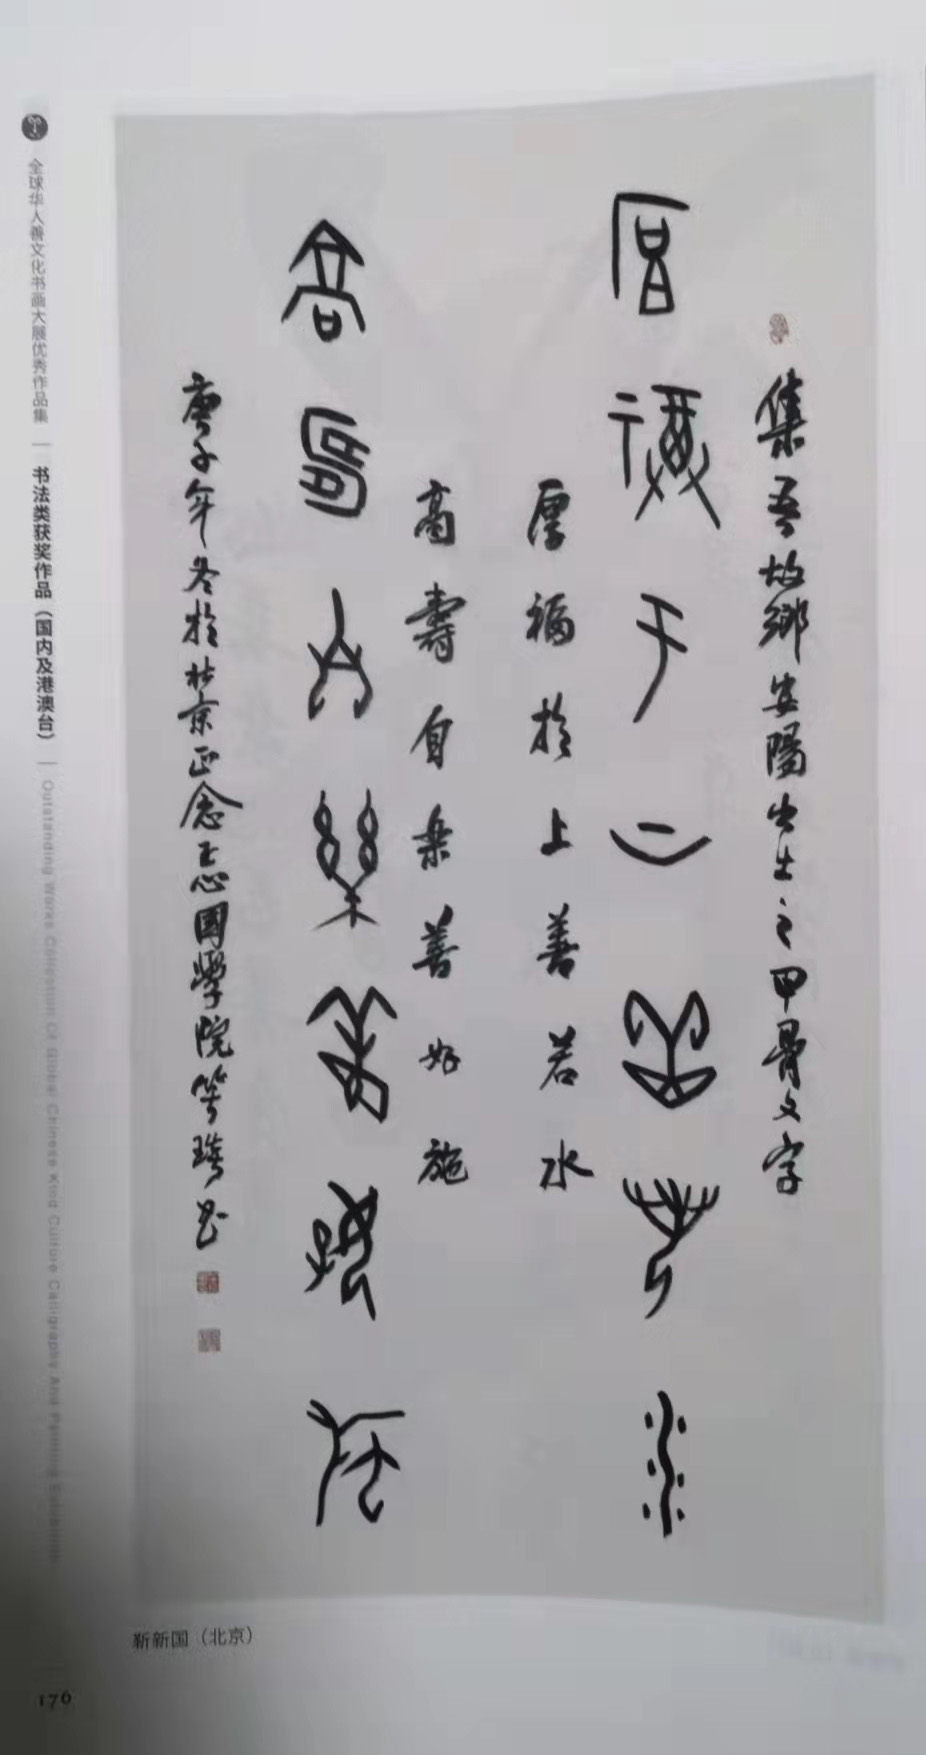 集吾故鄉安陽出土之甲骨文字
厚福于上善若水
厚福於上善若水
高壽自樂善好施
高壽自樂善好施
庚子年冬於北京正念正志國學院
全球华人善文化书画大展优秀作品集 | 书法类获奖作品（国内及港澳台） | Outstanding Works Collection Of Global Chinese Kind Culture Calligraphy And Painting Exhibition
靳新国（北京）
176